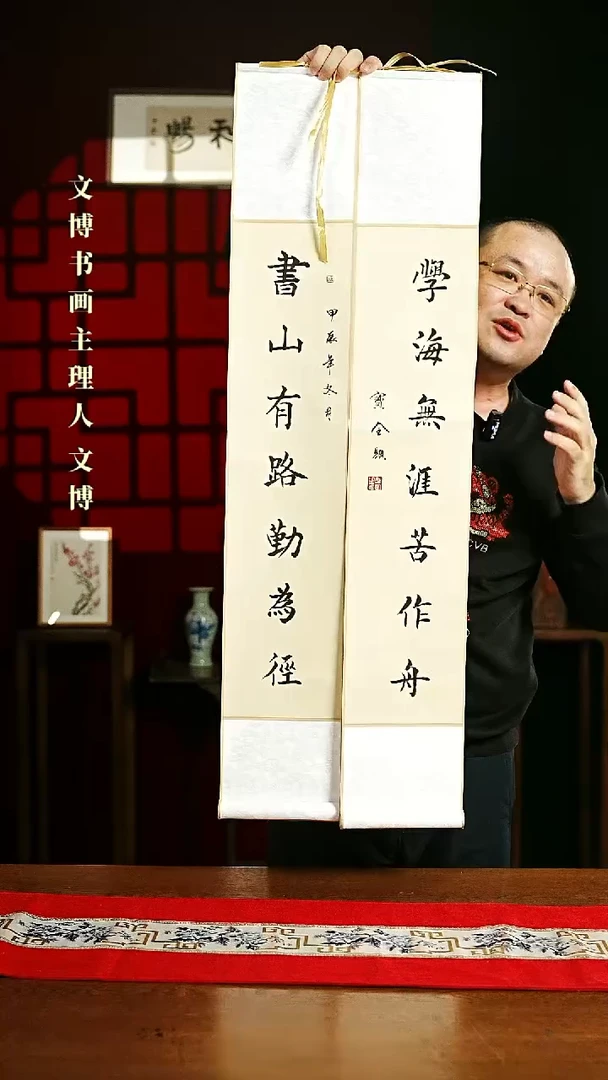 文博书画主理人文博
書山有路勤為徑
甲辰年冬月
學海無涯苦作舟